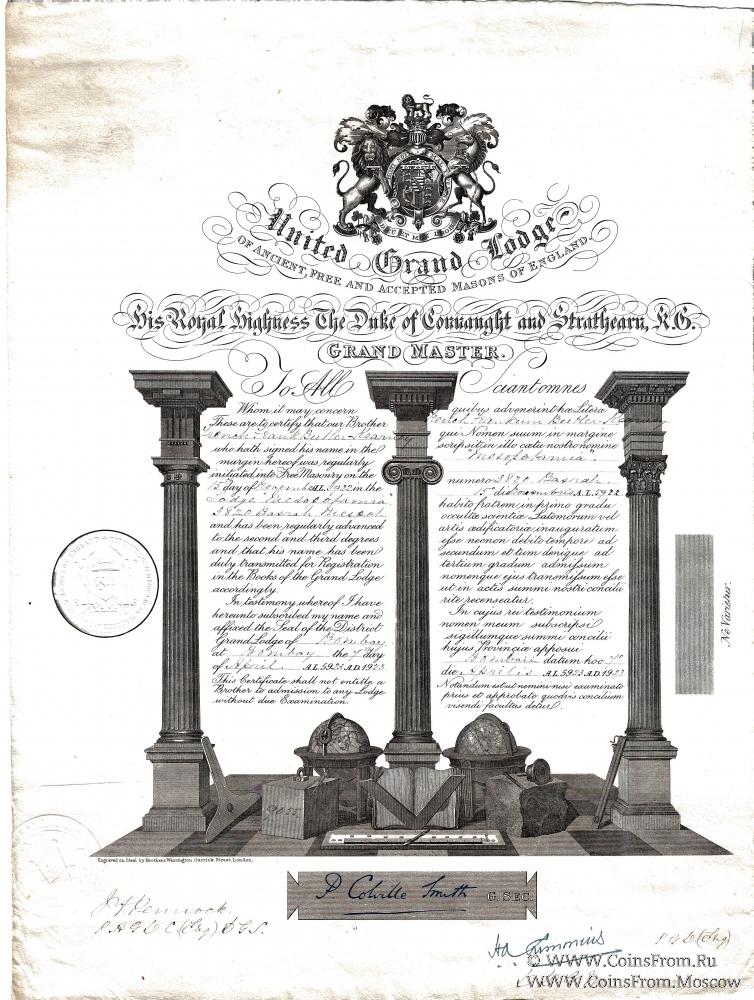 United Grand Lodge
OF ANCIENT, FREE AND ACCEPTED MASONS OF ENGLAND.
His Royal Highness The Duke of Connaught and Strathearn, K.G.
GRAND MASTER.
To All
Whom it may concern
These are to certify that our Brother
French Frank Butler-Kearney
who hath signed his name in the
margin hereof was regularly
initiated into Free Masonry on the
15 day of A.L. 5922 in the
Lodge "Mesopotamia"
3820 Basrah
and has been regularly advanced
to the second and third degrees
and that his name has been
duly transmitted for Registration
in the Books of the Grand Lodge
accordingly.
In testimony whereof I have
hereunto subscribed my name and
affixed the Seal of the District
Grand Lodge of Bombay
at Bombay the 7 day
of April A.L. 5923 A.D. 1923
This Certificate shall not entitle a
Brother to admission to any Lodge
without due Examination.
Sciant omnes
quibus advenerint hæ Literæ
qui Nomen suum in margine
scripsit in illo cœtu nostro nomine
"Mesopotamia"
numero 3820 Basrah
15 die A.L. 5922
habito fratrem in primo gradu
occultæ scientiæ Latomorum vel
artis ædificatoriæ inauguratum
esse necnon debito tempore ad
secundum et tum denique ad
tertium gradum admissum
nomenque ejus transmissum esse
ut in actis summi nostri concilii
rite recenseatur.
In cujus rei testimonium
nomen meum subscripsi
sigillumque summi concilii
hujus Provinciæ apposui
datum hoc 7º
die Aprilis A.L. 5923 A.D. 1923
Notandum est ut nemini nisi examinato
prius et approbato quodvis concilium
visendi facultas detur.
Ne Varietur.
Engraved on Steel by Brothers Warrington, Garrick Street, London.
P Colville Smith G. SEC.
© WWW.CoinsFrom.Ru
WWW.CoinsFrom.Moscow